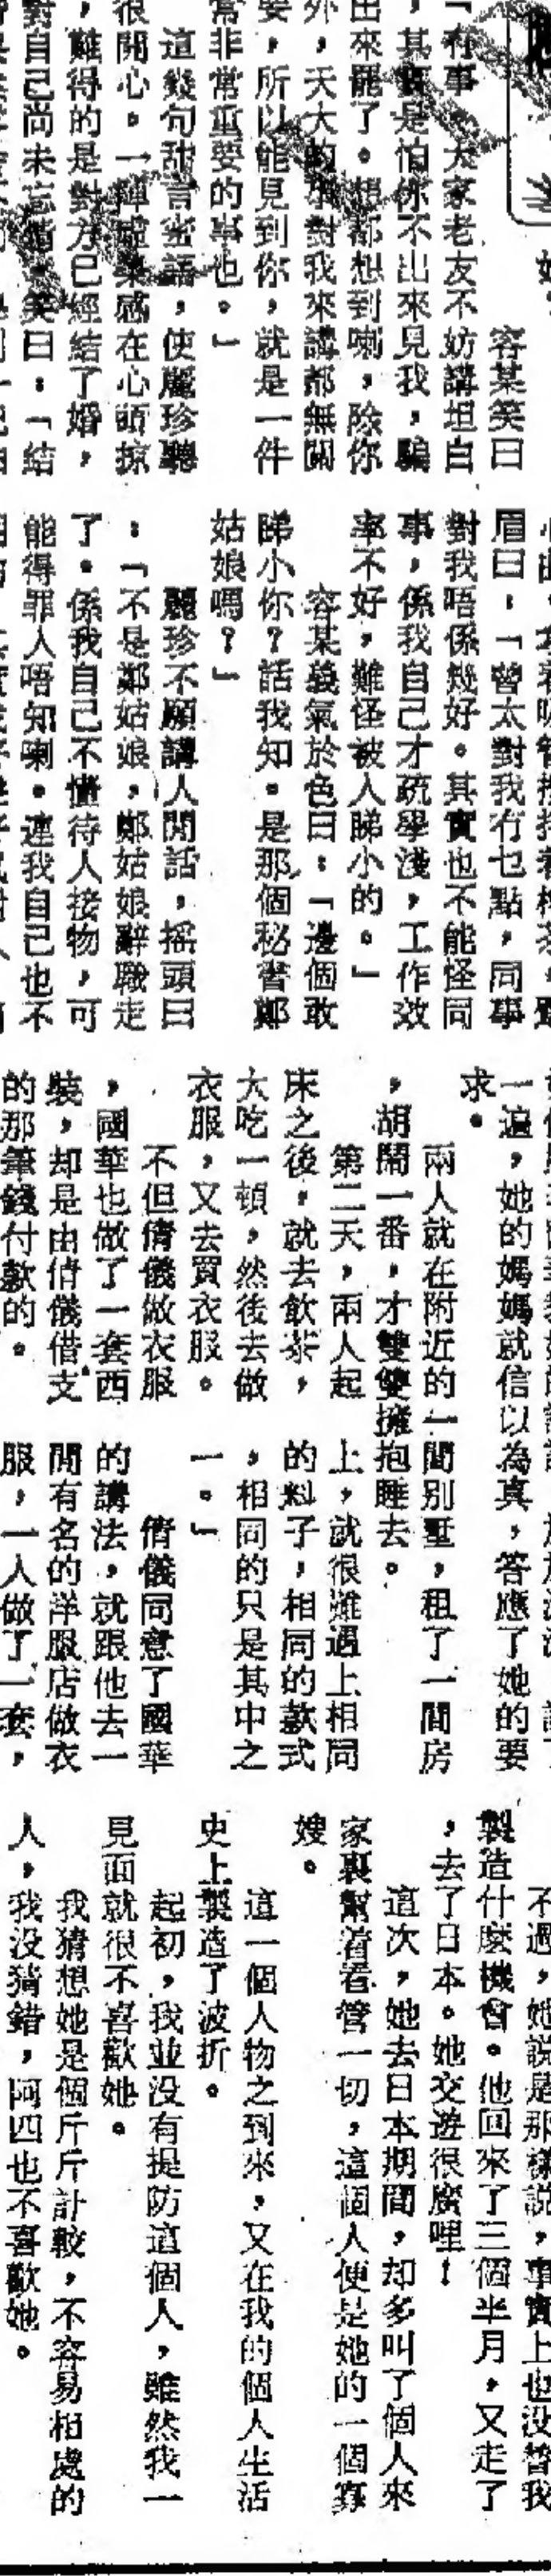 容某笑曰
「有事。大家老友不妨講坦白
，其實是怕你不出來見我，騙
出來罷了。想都想到喇，除你
外，天大的事對我來講都無關
要，所以能見到你，就是一件
常非常重要的事也。」
這幾句甜言蜜語，使麗珍聽
很開心。一陣虛榮感在心頭掠
，難得的是對方已經結了婚，
對自己尚未忘情。笑曰：「結
眉曰：「曾太對我冇乜點，同事
對我唔係幾好。其實也不能怪同
事，係我自己才疏學淺，工作效
率不好，難怪被人睇小的。」
容某義氣於色曰：「邊個敢
睇小你？話我知。是那個秘書鄭
姑娘嗎？」
麗珍不願講人閒話，搖頭曰
：「不是鄭姑娘，鄭姑娘辭職走
了。係我自己不懂待人接物，可
能得罪人唔知喇。連我自己也不
一遍，她的媽媽就信以為真，答應了她的要
求。
兩人就在附近的一間別墅，租了一間房
，胡鬧一番，才雙雙擁抱睡去。
第二天，兩人起
床之後，就去飲茶，
大吃一頓，然後去做
衣服，又去買衣服。
不但倩儀做衣服
，國華也做了一套西
裝，却是由倩儀借支
的那筆錢付款的。
上，就很難遇上相同
的料子，相同的款式
，相同的只是其中之
一。」
倩儀同意了國華
的講法，就跟他去一
間有名的洋服店做衣
服，一人做了一套，
不過，她說是那樣說，事實上也沒替我
製造什麼機會。他回來了三個半月，又走了
，去了日本。她交遊很廣哩！
這次，她去日本期間，却多叫了個人來
家裏幫着看管一切，這個人便是她的一個寡
嫂。
這一個人物之到來，又在我的個人生活
史上製造了波折。
起初，我並沒有提防這個人，雖然我一
見面就很不喜歡她。
我猜想她是個斤斤計較，不容易相處的
人，我沒猜錯，阿四也不喜歡她。